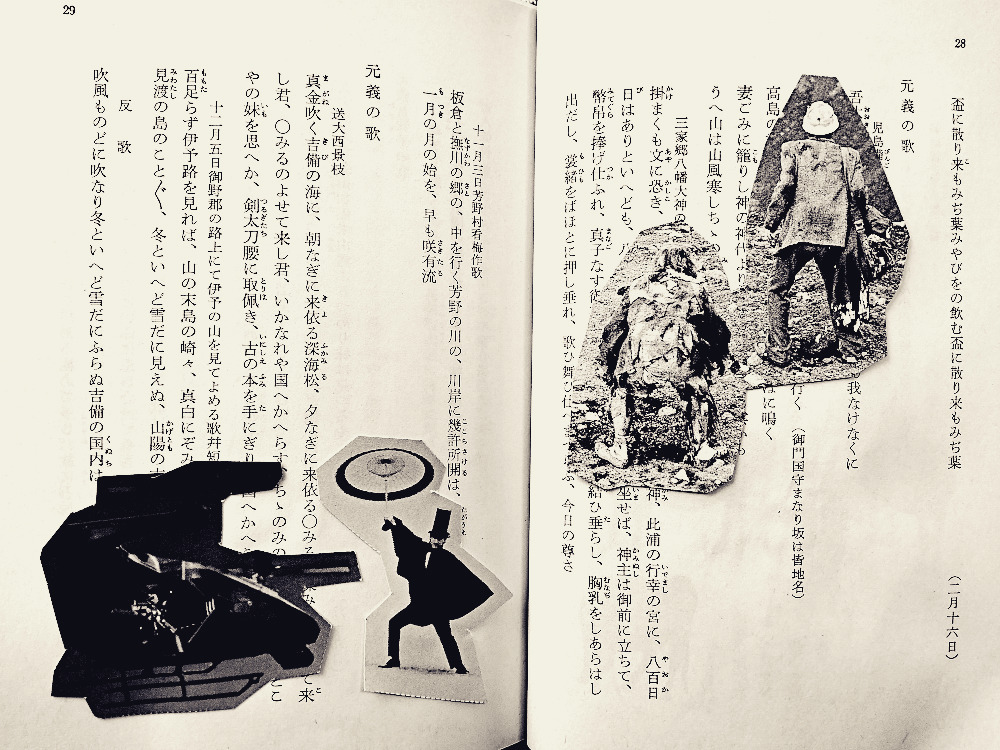 28
盃に散り来もみぢ葉みやびをの飲む盃に散り来もみぢ葉
（二月十六日）
元義の歌
児島
吾
我なけなくに
高島の
行く（御門国守まなり坂は皆地名）
妻ごみに籠りし神の神代より
に鳴く
うへ山は山風寒しちゝの
三家郷八幡大神の
掛まくも文に恐き、
神、此浦の行幸の宮に、八百日
日はありといへども、八
坐せば、神主は御前に立ちて、
幣帛を捧げ仕ふれ、真子なす
結ひ垂らし、胸乳をしあらはし
出だし、裳緒をばほとに押し垂れ、歌ひ舞ひ仕へ
ぶ、今日の尊さ
29
十一月三日芳野村看梅作歌
板倉と撫川の郷の、中を行く芳野の川の、川岸に幾許所開は、
一月の月の始を、早も咲有流
元義の歌
送大西景枝
真金吹く吉備の海に、朝なぎに来依る深海松、夕なぎに来依る〇みる
て来
し君、〇みるのよせて来し君、いかなれや国へかへらす、ちゝのみの
こ
やの妹を思へか、剣太刀腰に取佩き、古の本を手にぎり
へかへら
十二月五日御野郡の路上にて伊予の山を見てよめる歌幷短
百足らず伊予路を見れば、山の末島の崎々、真白にぞみ
見渡の島のこと〲、冬といへど雪だに見えぬ、山陽の
反歌
吹風ものどに吹なり冬といへど雪だにふらぬ吉備の国内は